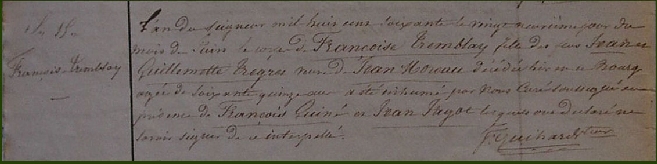 Françoise Tremblay
L'an du Seigneur mil huit cent soixante le vingt neuvième jour du
mois de Juin le corps de Françoise Tremblay fille des feus Jean et
Guillemette Tregret veuve de Jean décédée hier en ce Bourg
agée de soixante quinze ans a été inhumé par Nous Curé soussigné en
présence de François Guiné et Jean Fagot lesquels ont déclaré ne
savoir signer de ce interpellé.
F. Guihard